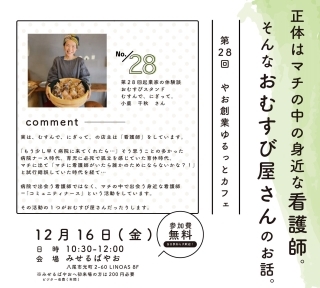 正体はマチの中の身近な看護師。
そんなおむすび屋さんのお話。
第28回 やお創業ゆるっとカフェ
No.28
第28回起業家の体験談
おむすびスタンド
むすんで、にぎって、
小島 千秋 さん
comment
実は、むすんで、にぎって、の店主は「看護師」をしています。
「もう少し早く病院に来てくれたら…」そう思うことの多かった
病院ナース時代、育児に必死で孤立を感じていた育休時代、
マチに出て「マチに看護師がいたら誰かのためにならないかな？！」
と試行錯誤していた時代を経て…
病院で出会う看護師ではなく、マチの中で出会う身近な看護師
＝「コミュニティナース」という活動をしています。
その活動の１つがおむすび屋さんだったりします。
12月16日(金)
参加費
無料
日 時 10:30-12:00
会 場 みせるばやお
八尾市光町 2-60 LINOAS 8F
※みせるばやおへ初来場の方は200円必要